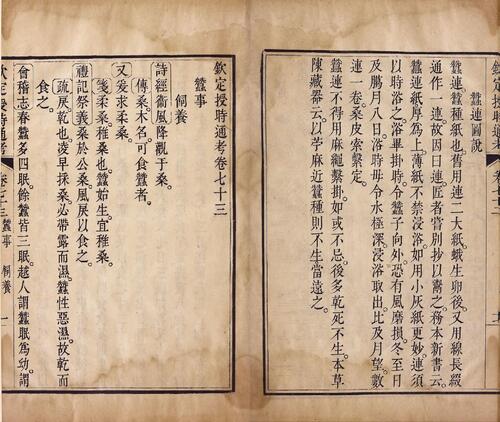 蠶連圖說
蠶連蠶種紙也。舊用連二大紙。蛾生卵後。又用線長綴
通作一連。故因曰連。匠者嘗別抄以鬻之。務本新書云。
蠶連紙厚為上。薄紙不禁浸浴。如用小灰紙更妙。連須
以時浴之。浴畢掛時。令蠶子向外。恐有風磨損。冬至日
及臘月八日。浴時毋令水極深。浸浴取出。比及月望。數
連一卷。桑皮索繫定。
蠶連不得用麻繩繫掛。如或不忌。後多乾死不生。本草
陳藏器云。以苧麻近蠶種則不生。當遠之。
欽定授時通考卷七十三
蠶事
飼養
詩經衛風降觀于桑。
傳桑木名。可食蠶者。
又爰求柔桑。
箋柔桑稚桑也。蠶始生。宜稚桑。
禮記祭義桑於公桑。風戾以食之。
疏戾乾也。凌早採桑。必帶露而濕。蠶性惡濕。故乾而
食之。
會稽志春蠶多四眠。餘蠶皆三眠。越人謂蠶眠為幼。謂
欽定授時通考 卷七十三 蠶事 飼養 一